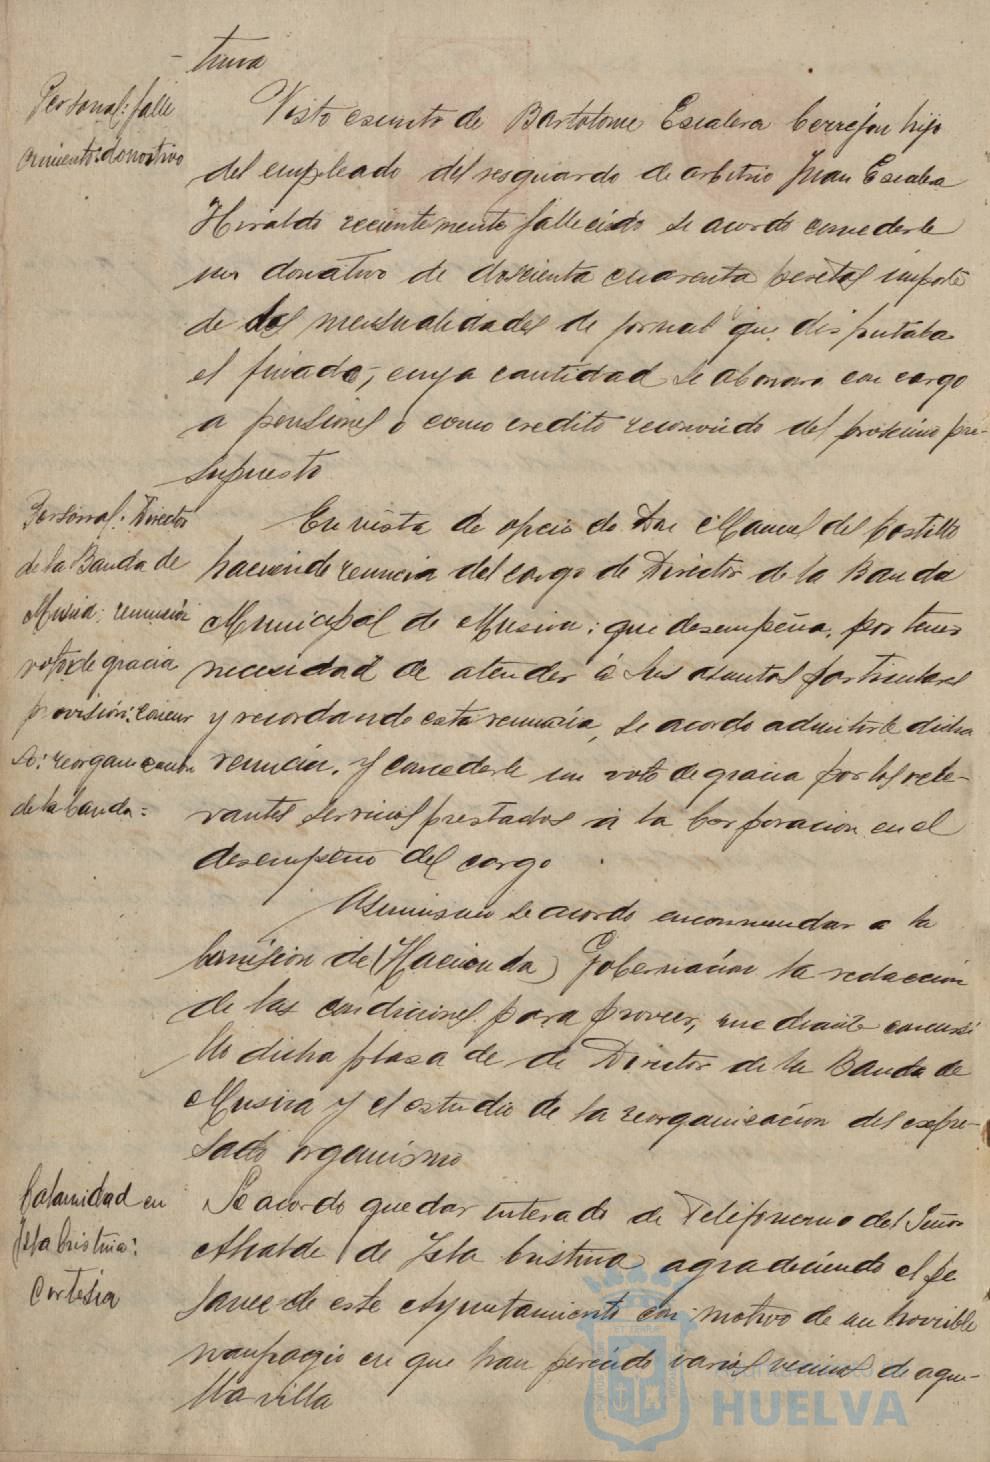 tura
Personal: falle
cimiento: donativo
Visto escrito de Bartolome Escalera Cerrejon hijo
del empleado del resguardo de arbitrio Juan Escalera
Hiraldo recientemente fallecido se acordo concederle
un donativo de doscienta cuarenta pesetas importe
de dos mensualidades de jornal que disfrutaba
el finado, cuya cantidad se abonara con cargo
a pensiones o como credito reconocido del proximo pre-
supuesto
Personal: Director
de la Banda de
Musica: renuncia
voto de gracia
provision: concur
so: reorganizacion
de la banda=
En vista de oficio de Don Manuel del Castillo
haciendo renuncia del cargo de Director de la Banda
Municipal de Musica; que desempeña, por tener
necesidad de atender á sus asuntos particulares
y recordando esta renuncia, se acordo admitirle dicha
renuncia, y concederle un voto de gracia por los rele-
vantes servicios prestados a la Corporacion en el
desempeño del cargo
Asimismo se acordo encomendar a la
Comision de (Hacienda) Gobernacion la redaccion
de las condiciones para proveer, mediante concurso
dicha plasa de de Director de la Banda de
Musica y el estudio de la reorganizacion del expre-
sado organismo
Calamidad en
Isla Cristina:
Cortesia
Se acordo quedar enterado de Telefonema del Señor
Alcalde de Isla Cristina agradeciendo el pe
same de este Ayuntamiento con motivo de un horrible
naufragio en que han perecido varios vecinos de aque-
lla villa
HUELVA